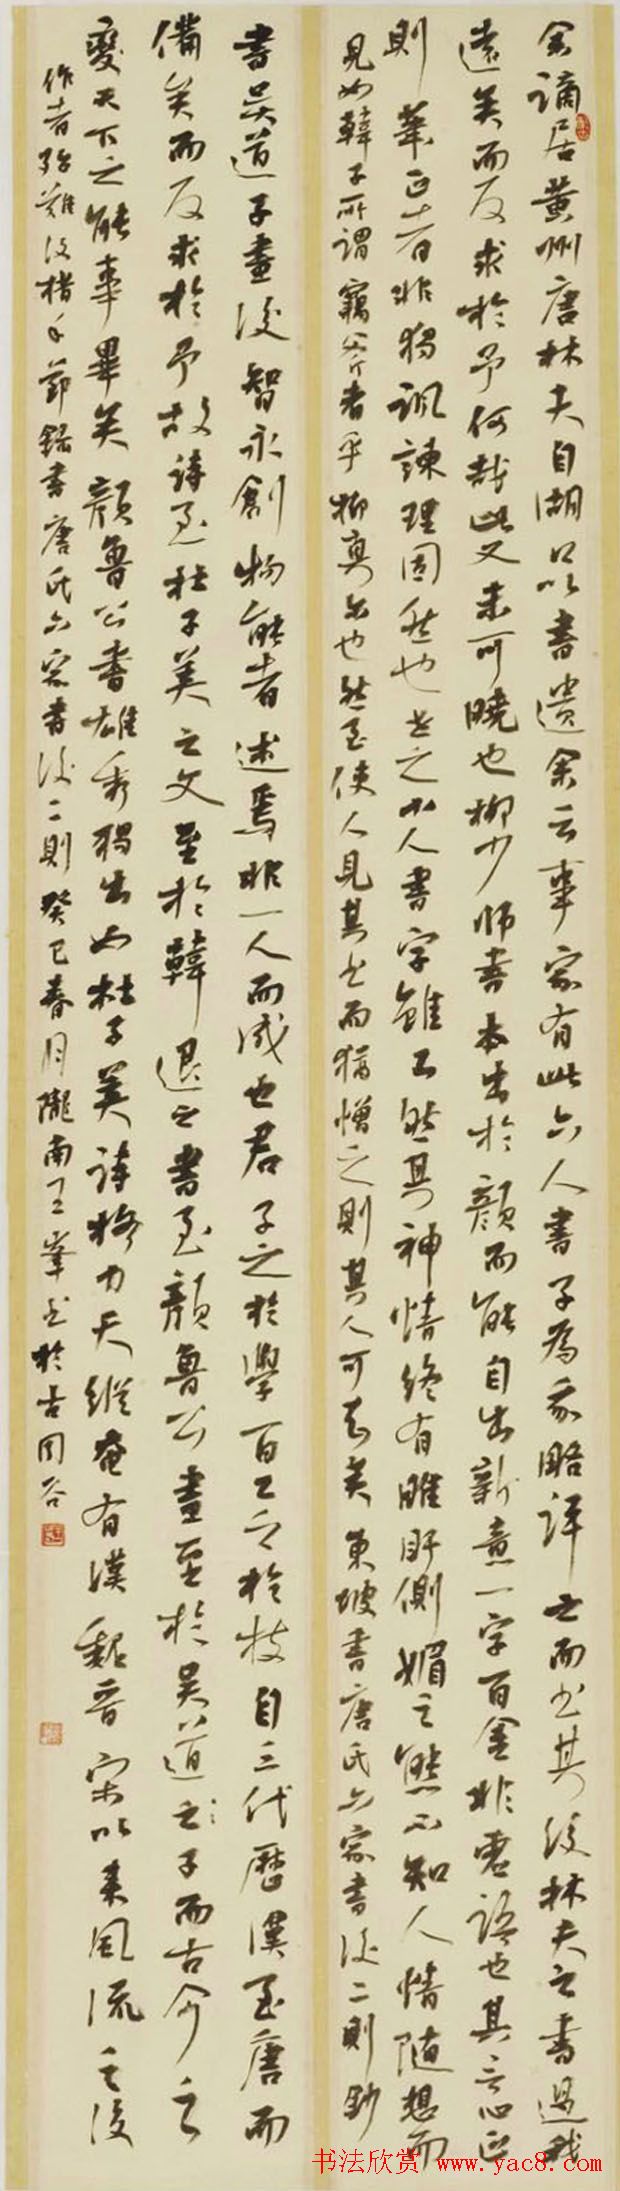 余謫居黄州唐林夫自湖口以書遺余云吾家有此六人書子為我略評之而书其後林夫之書過我
遠矣而反求於予何哉此又未可曉也柳少師書本出於顔而能自出新意一字百金非虚語也其言心正
則筆正者非獨諷諫理固然也世之小人書字雖工然其神情終有睢盱側媚之態不知人情隨想而
見如韓子所謂竊斧者乎抑真尔也然至使人見其书而猶憎之則其人可知矣東坡書唐氏六家書後二則鈔
書吴道子畫後智永創物能者述焉非一人而成也君子之於學百工之於技自三代歷漢至唐而
備矣而反求於予故詩至杜子美之文至於韓退之書至顔魯公畫至於吴道之子而古今之
變天下之能事畢矣顔魯公書雄秀獨出如杜子美詩格力天縱奄有漢魏晋宋以来風流之後
作者殆難復措手節錄書唐氏六家書後二則癸巳春月隴南王峯书於古同谷
书法欣赏 www.yac8.com